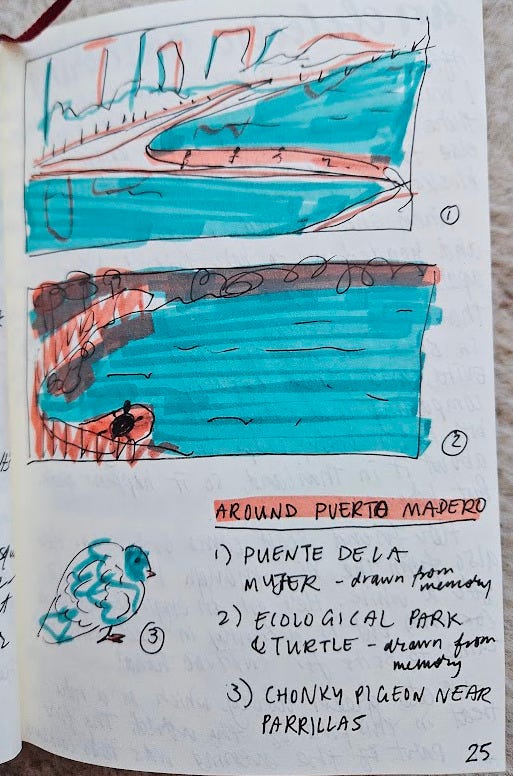 1
2
AROUND PUERTO MADERO
1) PUENTE DE LA
MUJER - drawn from
memory
2) ECOLOGICAL PARK
& TURTLE - drawn from
memory
3
3) CHONKY PIGEON NEAR
PARRILLAS
25